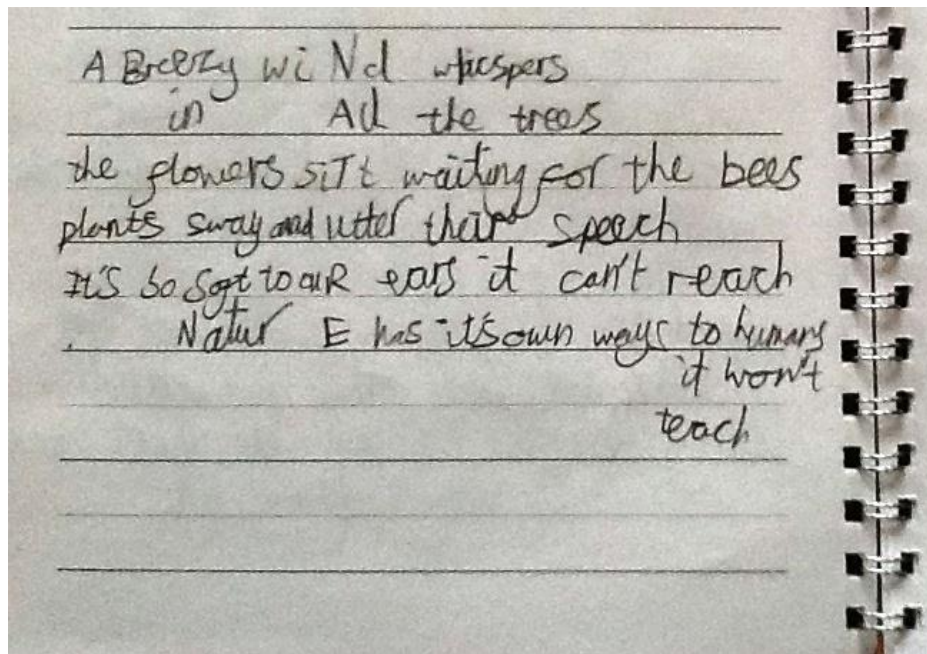 A Breezy wiNd whispers
in All the trees
the flowers siTt waiting for the bees
plants sway and utter their speech
It's so soft to ouR ears it can't reach
Natur E has it's own ways to humans
it won't
teach